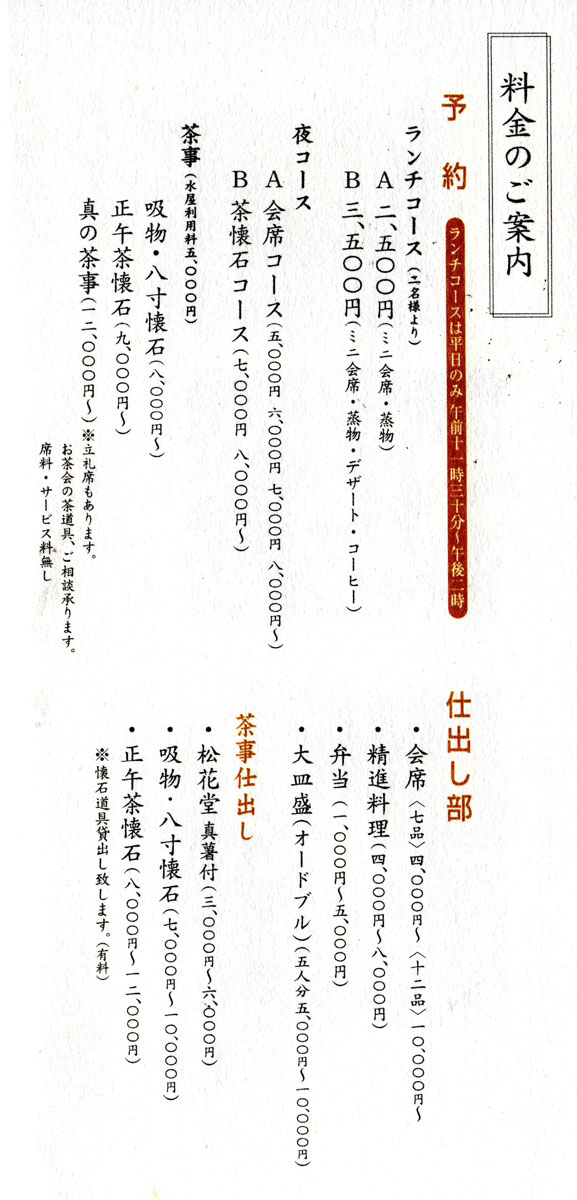 料金のご案内
予約
ランチコースは平日のみ 午前十一時三十分〜午後二時
ランチコース(二名様より)
A 二、五〇〇円(ミニ会席・蒸物)
B 三、五〇〇円(ミニ会席・蒸物・デザート・コーヒー)
夜コース
A 会席コース(五、〇〇〇円 六、〇〇〇円 七、〇〇〇円 八、〇〇〇円〜)
B 茶懐石コース(七、〇〇〇円 八、〇〇〇円〜)
茶事(水屋利用料五、〇〇〇円)
吸物・八寸懐石(八、〇〇〇円〜)
正午茶懐石(九、〇〇〇円〜)
真の茶事(一二、〇〇〇円〜)※立礼席もあります。
お茶会の茶道具、ご相談承ります。
席料・サービス料無し
仕出し部
・会席〈七品〉四、〇〇〇円〜〈十二品〉一〇、〇〇〇円〜
・精進料理(四、〇〇〇円〜八、〇〇〇円)
・弁当(一、〇〇〇円〜五、〇〇〇円)
・大皿盛(オードブル)(五人分五、〇〇〇円〜一〇、〇〇〇円)
茶事仕出し
・松花堂 真薯付(三、〇〇〇円〜六、〇〇〇円)
・吸物・八寸懐石(七、〇〇〇円〜一〇、〇〇〇円)
・正午茶懐石(八、〇〇〇円〜一二、〇〇〇円)
※懐石道具貸出し致します。(有料)